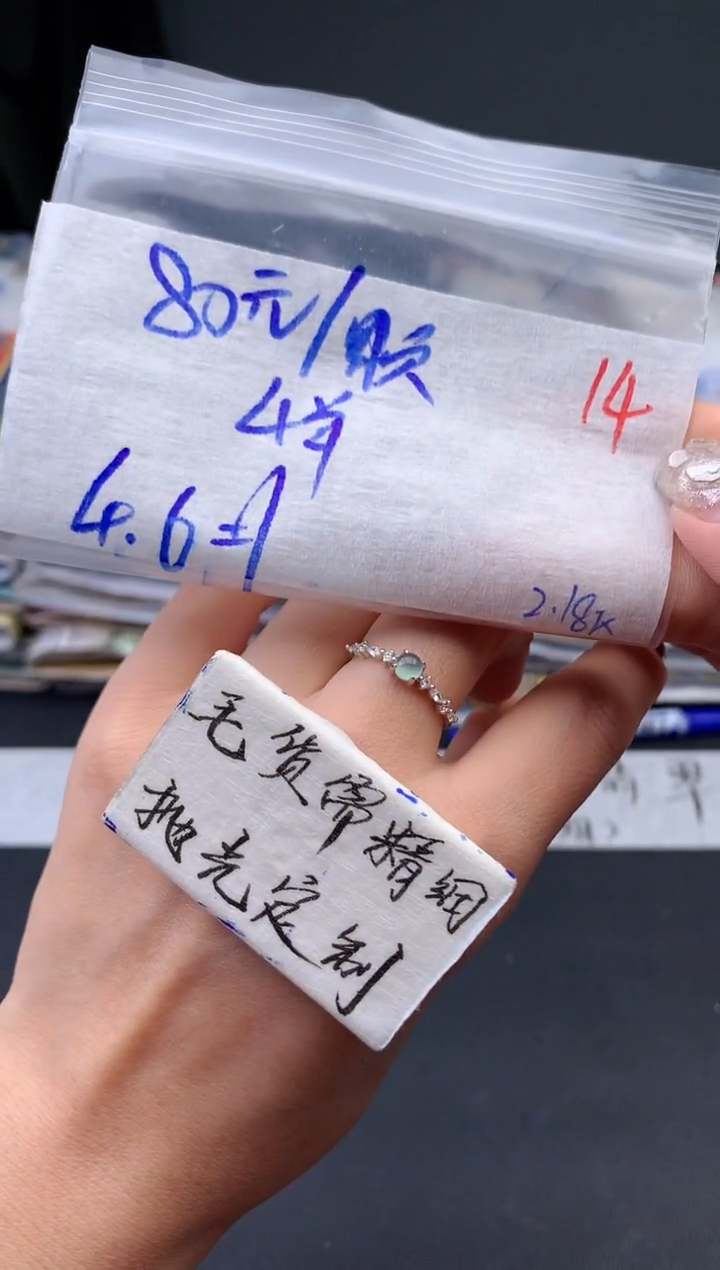 80元/颗
14
4.6±1
2.18k
毛货需精细
抛光定制